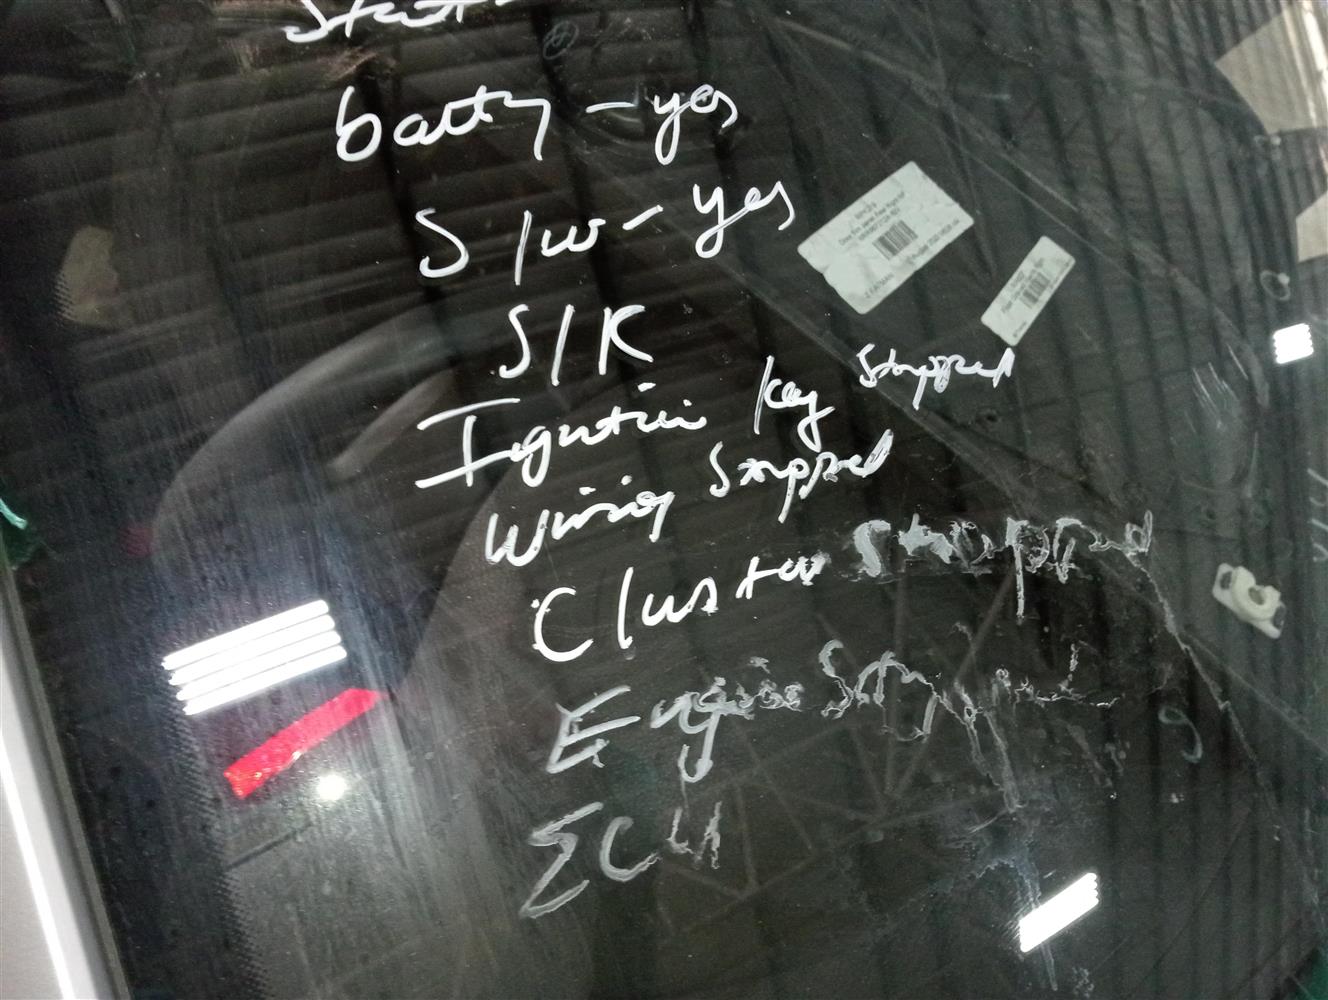 battry - yes
S/w - yes
S/K
Ignition key Stopped
Wiring Stopped
Cluster Stopped
Engine
ECU